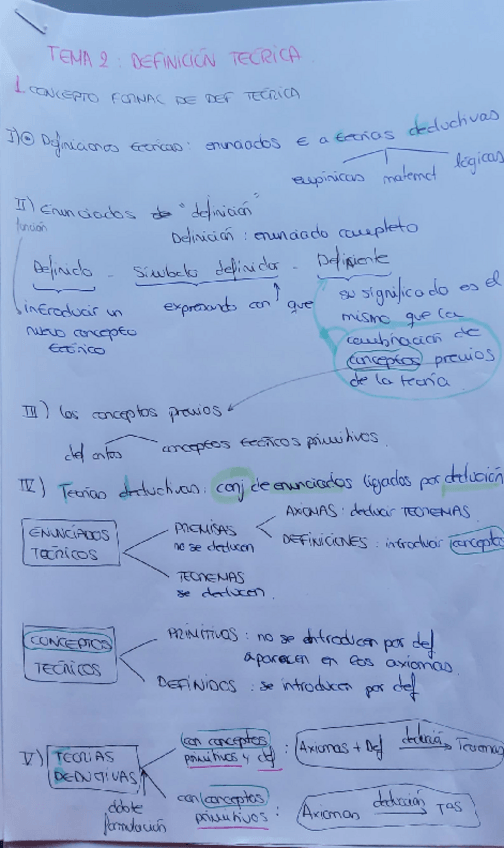 TEMA 2: DEFINICIÓN TEÓRICA.
1. CONCEPTO FORMAL DE DEF TEÓRICA
I) Definiciones teóricas: enunciados ∈ a teorías deductivas
empíricas matemát lógicas
II) Enunciados de "definición"
función
Definición: enunciado completo
Definido - Símbolo definidor - Definiente
introducir un nuevo concepto teórico
expresando con que
su significado es el
mismo que la
combinación de
conceptos previos
de la teoría
III) los conceptos previos
def antes conceptos teóricos primitivos.
IV) Teorías deductivas: conj de enunciados ligados por deducción
ENUNCIADOS TEÓRICOS
PREMISAS
no se deducen
AXIOMAS: deducir TEOREMAS.
DEFINICIONES: introducir concepto
TEOREMAS
se deducen.
CONCEPTOS TEÓRICOS
PRIMITIVOS: no se introducen por def
aparecen en los axiomas.
DEFINIDOS: se introducen por def
V) TEORIAS DEDUCTIVAS
doble formulación
con conceptos primitivos y def : Axiomas + Def deducción Teoremas
con conceptos primitivos : Axiomas deducción TAS